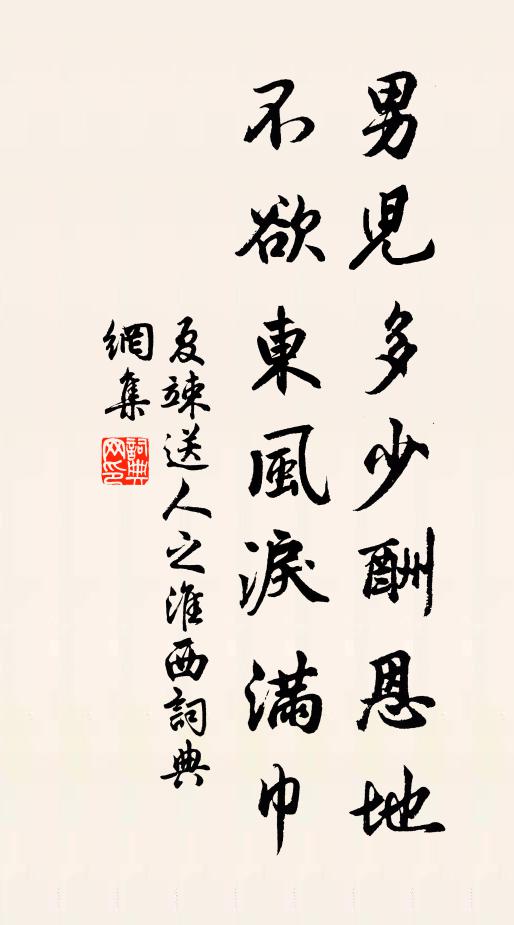 男兒多少酬恩地
不欲東風淚滿巾
夏竦送人之淮西詞典
網集
詞典
网印